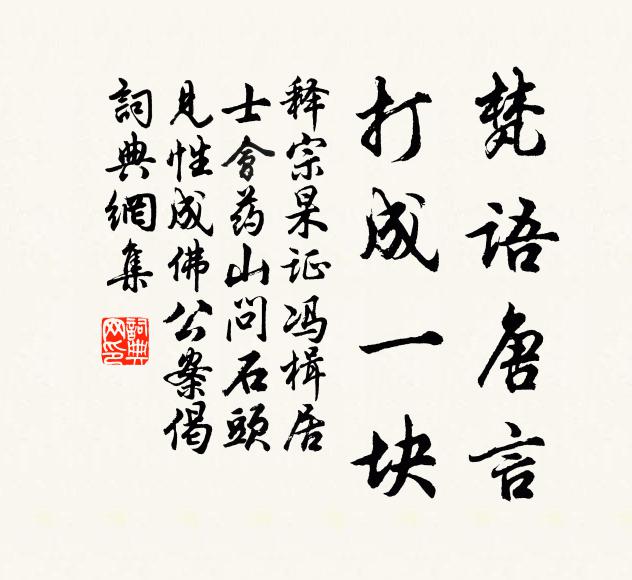 梵语唐言
打成一块
释宗杲证冯楫居
士會药山问石頭
见性成佛公案偈
詞典網集
詞典
网印